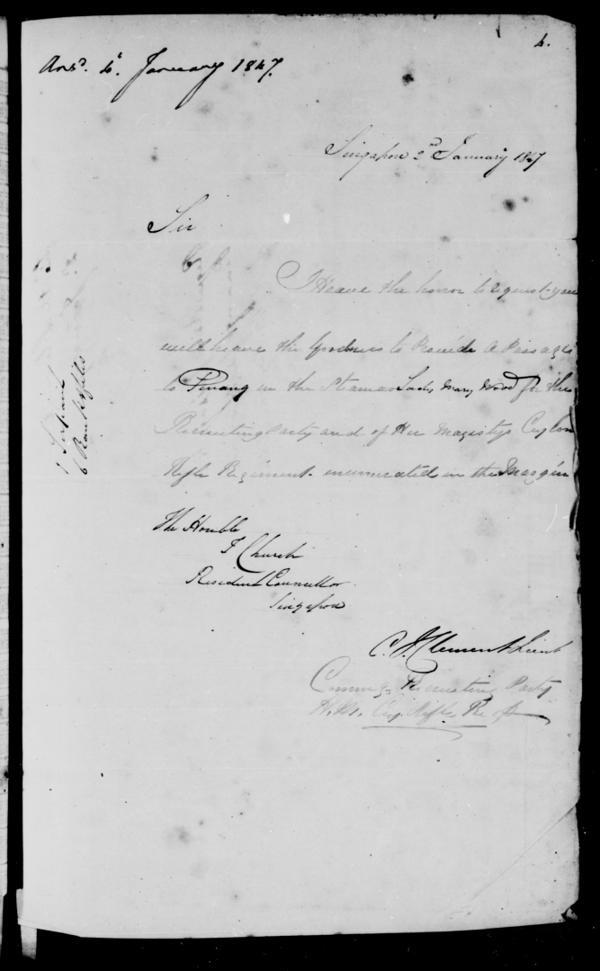 4.
Ansd. 4th January 1847.
Singapore 2nd January 1847
Sir
I Have the honor to request you
will have the Goodness to Provide A Passage
to Pinang in the Steamer Lady Mary Wood for the
Recruiting Party and of Her Magistys Ceylon
Rifle Regiment enumerated in the Margin
1 Serjeant
6 Rank & files
The Honble
T Church
Resident Councillor
Singapore
C. J. Clement Lieut
Commg. Recruiting Party
H.M. Cey. Rifle